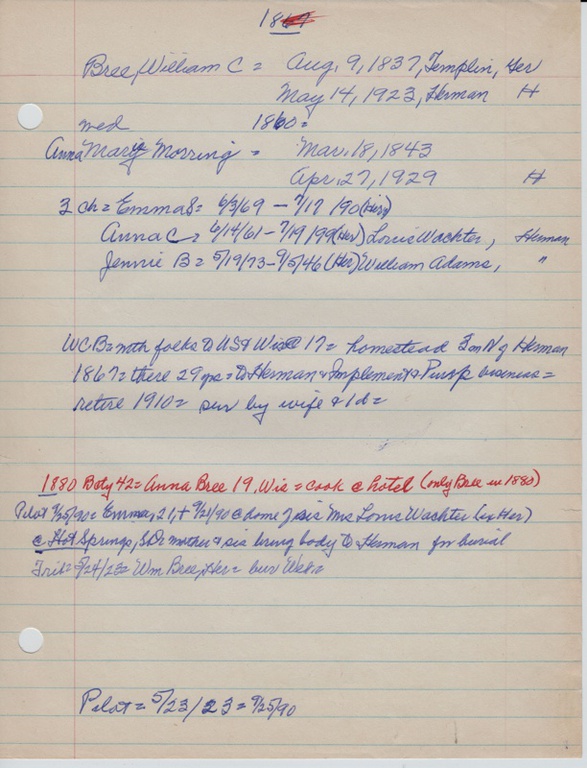 1867
Bree, William C = Aug. 9, 1837, Templin, Ger
May 14, 1923, Herman H
wed 1860=
Anna Mary Morring = Mar. 18, 1843
Apr. 27, 1929 H
3 ch = Emma S = 6/3/69 - 9/17/90 (Her)
Anna C = 6/14/61 - 7/19/99 (Her) Louis Wachter, Herman
Jennie B = 5/19/73 - 9/5/46 (Her) William Adams, "
WCB = with folks to US & Wis @ 17 = homestead 3 m N of Herman
1867 = there 29 yrs = to Herman & Implement & Pump business =
retire 1910 = sur by wife & 1 d =
1880 Boty 42 = Anna Bree 19, Wis = cook @ hotel (only Bree in 1880)
Pilot 9/25/90 = Emma, 21, + 9/21/90 @ home of sis Mrs Louis Wachter (ex Her)
@ Hot Springs, S.D. mother & sis bring body to Herman for burial
Trib = 5/24/23 = Wm Bree, Her = bur Wed =
Pilot = 5/23/23 = 9/25/90